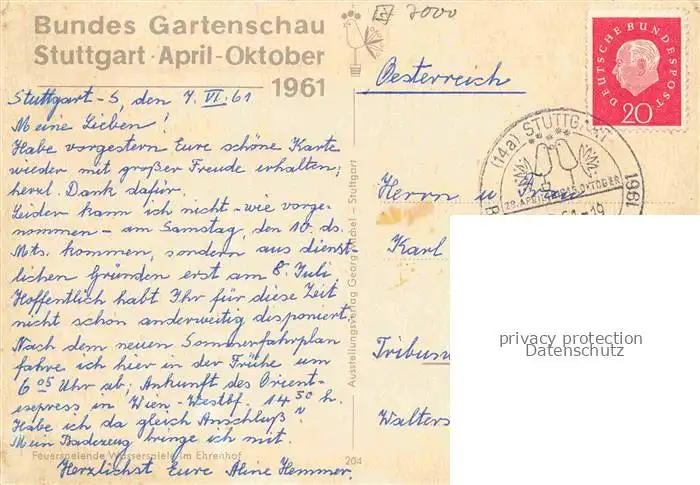 Bundes Gartenschau
Stuttgart · April-Oktober
1961
Stuttgart-S, den 7. VI. 61
Meine Lieben!
Habe vorgestern Eure schöne Karte
wieder mit großer Freude erhalten;
herzl. Dank dafür.
Leider kann ich nicht - wie vorge-
nommen - am Samstag, den 10. ds.
Mts. kommen, sondern aus dienst-
lichen Gründen erst am 8. Juli
Hoffentlich habt Ihr für diese Zeit
nicht schon anderweitig disponiert.
Nach dem neuen Sommerfahrplan
fahre ich hier in der Frühe um
6 05 Uhr ab; Ankunft des Orient-
expreß in Wien-Westbf. 14 50 h.
Habe ich da gleich Anschluß?
Mein Badezeug bringe ich mit.
Feuerspeiende Wasserspiele im Ehrenhof
204
Herzlichst Eure Aline Hemmer.
Ausstellungsverlag Georg Michel - Stuttgart
7000
Oesterreich
DEUTSCHE BUNDESPOST
20
(14a) STUTTGART
28. APRIL BIS 15. OKTOBER
1961
-19
Herrn u. Frau
Karl
Tribus
Walters
privacy protection
Datenschutz